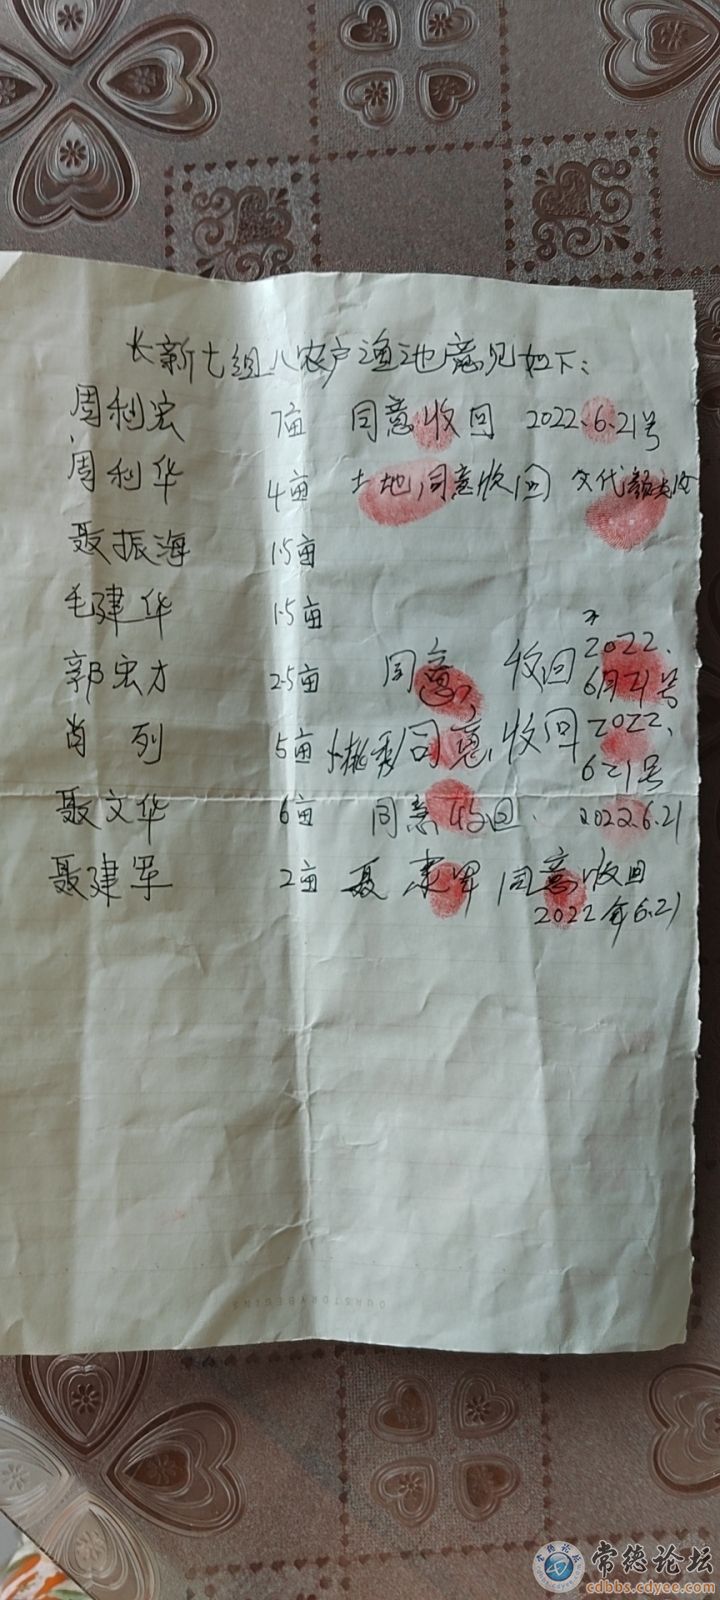 长新七组八农户渔池意见如下：
周利宏 7亩 同意收回 2022.6.21号
周利华 4亩 土地同意收回 交代
聂振海 1.5亩
毛建华 1.5亩
郭宏才 2.5亩 同意, 收回 2022.
6月21号
肖列 5亩 同意收回 2022.
621号
聂文华 6亩 同意收回. 2022.6.21
聂建军 2亩 聂建军 同意收回
2022年6.21
OURSTORYBEGINS
常德论坛
cdbbs.cdyee.com